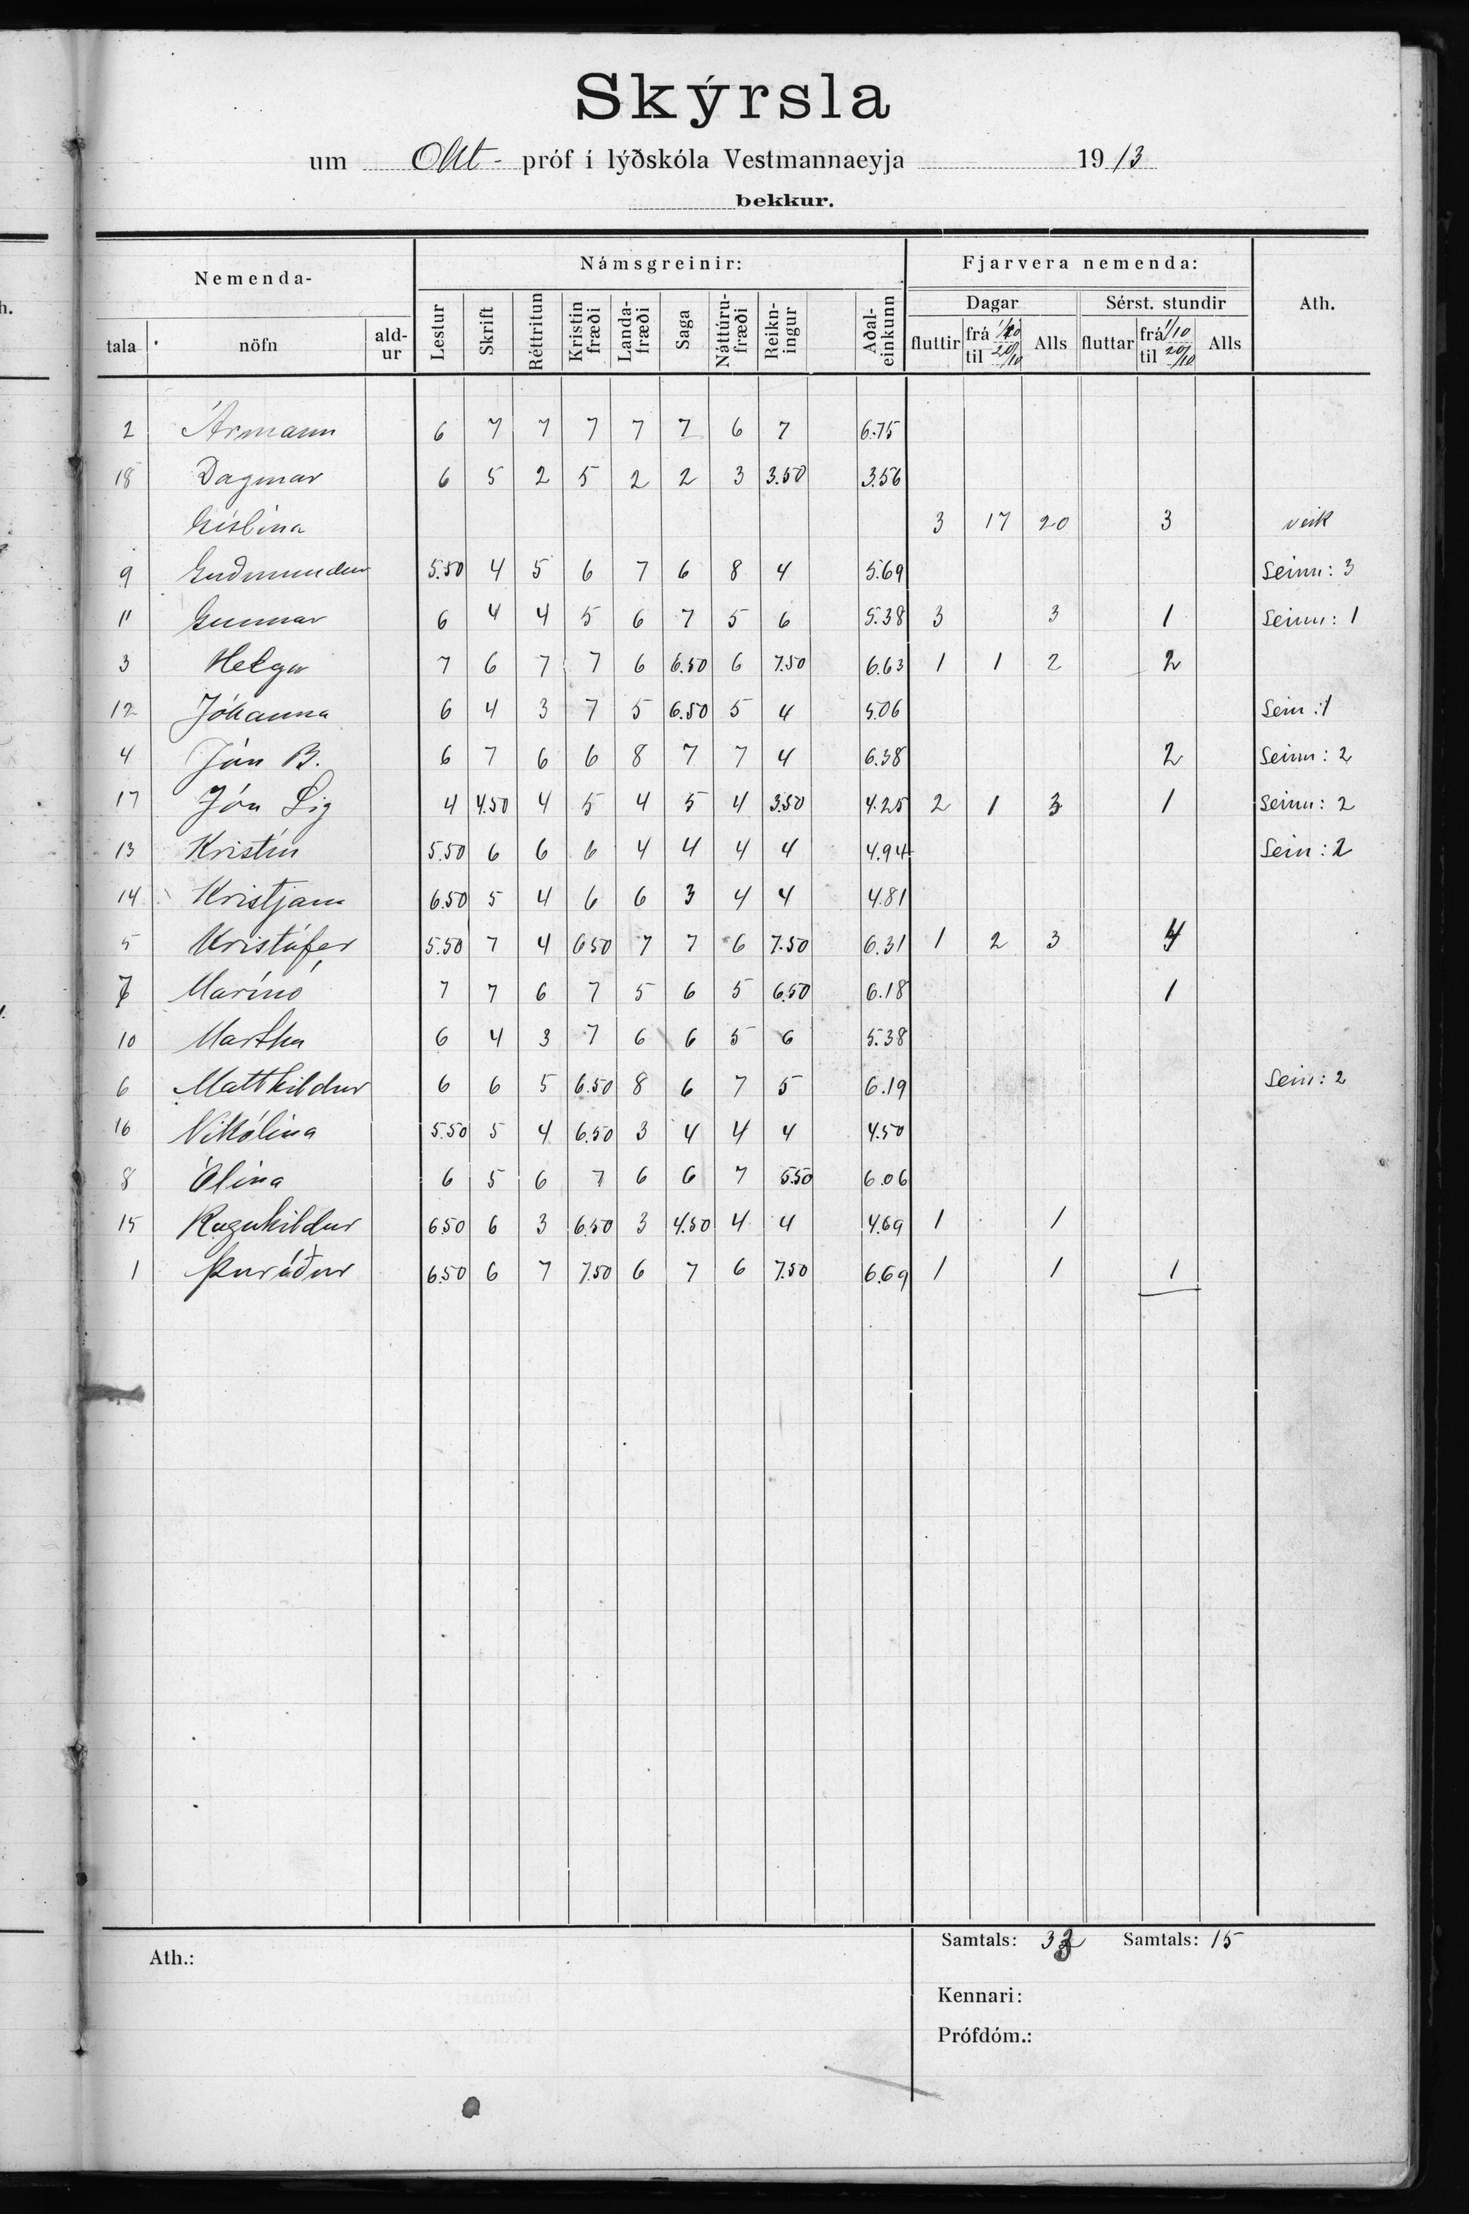 Skýrsla
um Okt- próf í lýðskóla Vestmannaeyja 1913
bekkur.
Nemenda- Námsgreinir: Fjarvera nemenda: Ath.
Dagar Sérst. stundir
tala nöfn ald-ur Lestur Skrift Réttritun Kristin fræði Landa-fræði Saga Náttúru-fræði Reikn-ingur Aðal-einkunn fluttir frá 1/10 til 20/10 Alls fluttar frá 1/10 til 20/10 Alls
2 Ármann 6 7 7 7 7 7 6 7 6.75
18 Dagmar 6 5 2 5 2 2 3 3.50 3.56
Gíslína 3 17 20 3 veik
9 Guðmundur 5.50 4 5 6 7 6 8 4 5.69 Seinn: 3
11 Gunnar 6 4 4 5 6 7 5 6 5.38 3 3 1 Seinn: 1
3 Helga 7 6 7 7 6 6.50 6 7.50 6.63 1 1 2 2
12 Jóhanna 6 4 3 7 5 6.50 5 4 5.06 Sein: 1
4 Jón B. 6 7 6 6 8 7 7 4 6.38 2 Seinn: 2
17 Jón Sig 4 4.50 4 5 4 5 4 3.50 4.25 2 1 3 1 Seinn: 2
13 Kristín 5.50 6 6 6 4 4 4 4 4.94 Sein: 2
14 Kristjana 6.50 5 4 6 6 3 4 4 4.81
5 Kristófer 5.50 7 4 6.50 7 7 6 7.50 6.31 1 2 3 4
7 Marínó 7 7 6 7 5 6 5 6.50 6.18 1
10 Martha 6 4 3 7 6 6 5 6 5.38
6 Matthildur 6 6 5 6.50 8 6 7 5 6.19 Sein: 2
16 Nikólína 5.50 5 4 6.50 3 4 4 4 4.50
8 Ólína 6 5 6 7 6 6 7 5.50 6.06
15 Ragnhildur 6.50 6 3 6.50 3 4.50 4 4 4.69 1 1
1 Þuríður 6.50 6 7 7.50 6 7 6 7.50 6.69 1 1 1
Samtals: 33 Samtals: 15
Ath.:
Kennari:
Prófdóm.: